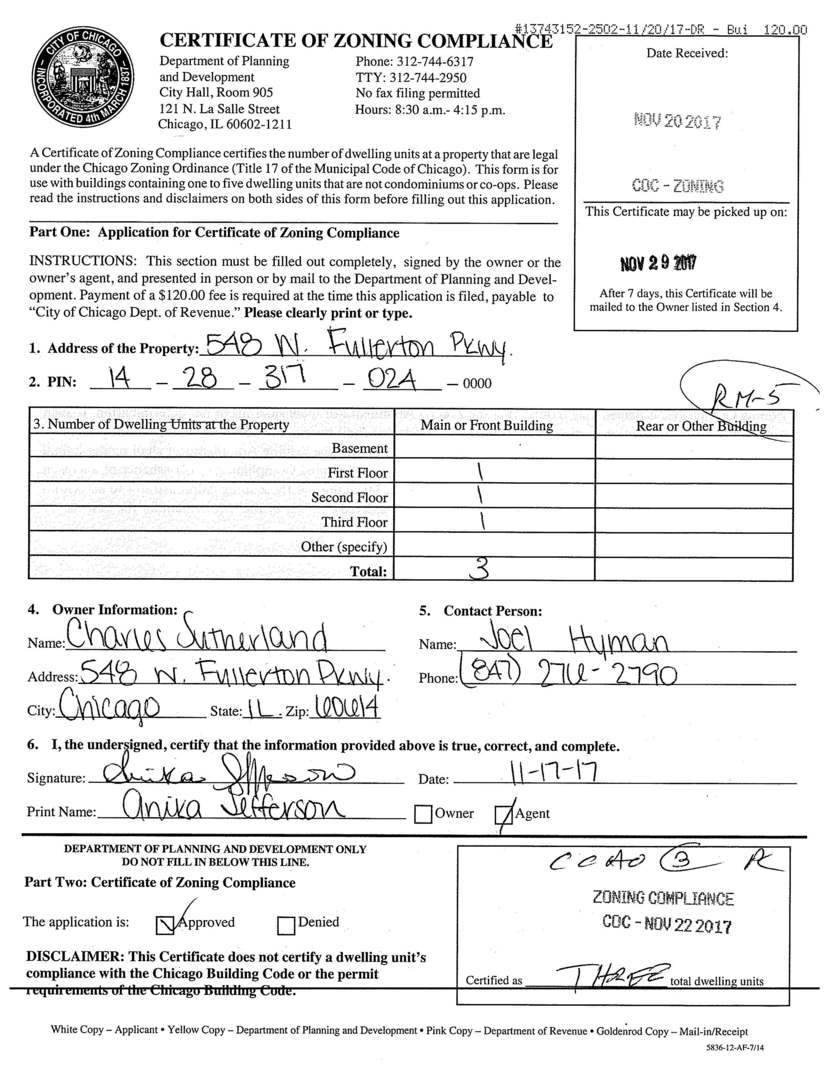 #13743152-2502-11/20/17-DR - Bui 120.00
CITY OF CHICAGO
INCORPORATED 4th MARCH 1837
CERTIFICATE OF ZONING COMPLIANCE
Department of Planning
and Development
City Hall, Room 905
121 N. La Salle Street
Chicago, IL 60602-1211
Phone: 312-744-6317
TTY: 312-744-2950
No fax filing permitted
Hours: 8:30 a.m.- 4:15 p.m.
Date Received:
NOV 20 2017
CDC - ZONING
This Certificate may be picked up on:
NOV 29 2017
After 7 days, this Certificate will be
mailed to the Owner listed in Section 4.
A Certificate of Zoning Compliance certifies the number of dwelling units at a property that are legal
under the Chicago Zoning Ordinance (Title 17 of the Municipal Code of Chicago). This form is for
use with buildings containing one to five dwelling units that are not condominiums or co-ops. Please
read the instructions and disclaimers on both sides of this form before filling out this application.
Part One: Application for Certificate of Zoning Compliance
INSTRUCTIONS: This section must be filled out completely, signed by the owner or the
owner's agent, and presented in person or by mail to the Department of Planning and Devel-
opment. Payment of a $120.00 fee is required at the time this application is filed, payable to
"City of Chicago Dept. of Revenue." Please clearly print or type.
1. Address of the Property: 548 W. Fullerton Pkwy.
2. PIN: 14 - 28 - 317 - 024 - 0000
RM-5
3. Number of Dwelling Units at the Property Main or Front Building Rear or Other Building
Basement
First Floor 1
Second Floor 1
Third Floor 1
Other (specify)
Total: 3
4. Owner Information:
Name: Charles Sutherland
Address: 548 W. Fullerton Pkwy.
City: Chicago State: IL. Zip: 60614
5. Contact Person:
Name: Joel Hyman
Phone: (847) 276-2790
6. I, the undersigned, certify that the information provided above is true, correct, and complete.
Signature: Anika Jefferson Date: 11-17-17
Print Name: Anika Jefferson Owner Agent
DEPARTMENT OF PLANNING AND DEVELOPMENT ONLY
DO NOT FILL IN BELOW THIS LINE.
Part Two: Certificate of Zoning Compliance
The application is: Approved Denied
DISCLAIMER: This Certificate does not certify a dwelling unit's
compliance with the Chicago Building Code or the permit
requirements of the Chicago Building Code.
CCAO 3
ZONING COMPLIANCE
CDC - NOV 22 2017
Certified as THREE total dwelling units
White Copy – Applicant • Yellow Copy – Department of Planning and Development • Pink Copy – Department of Revenue • Goldenrod Copy – Mail-in/Receipt
5836-12-AF-7/14